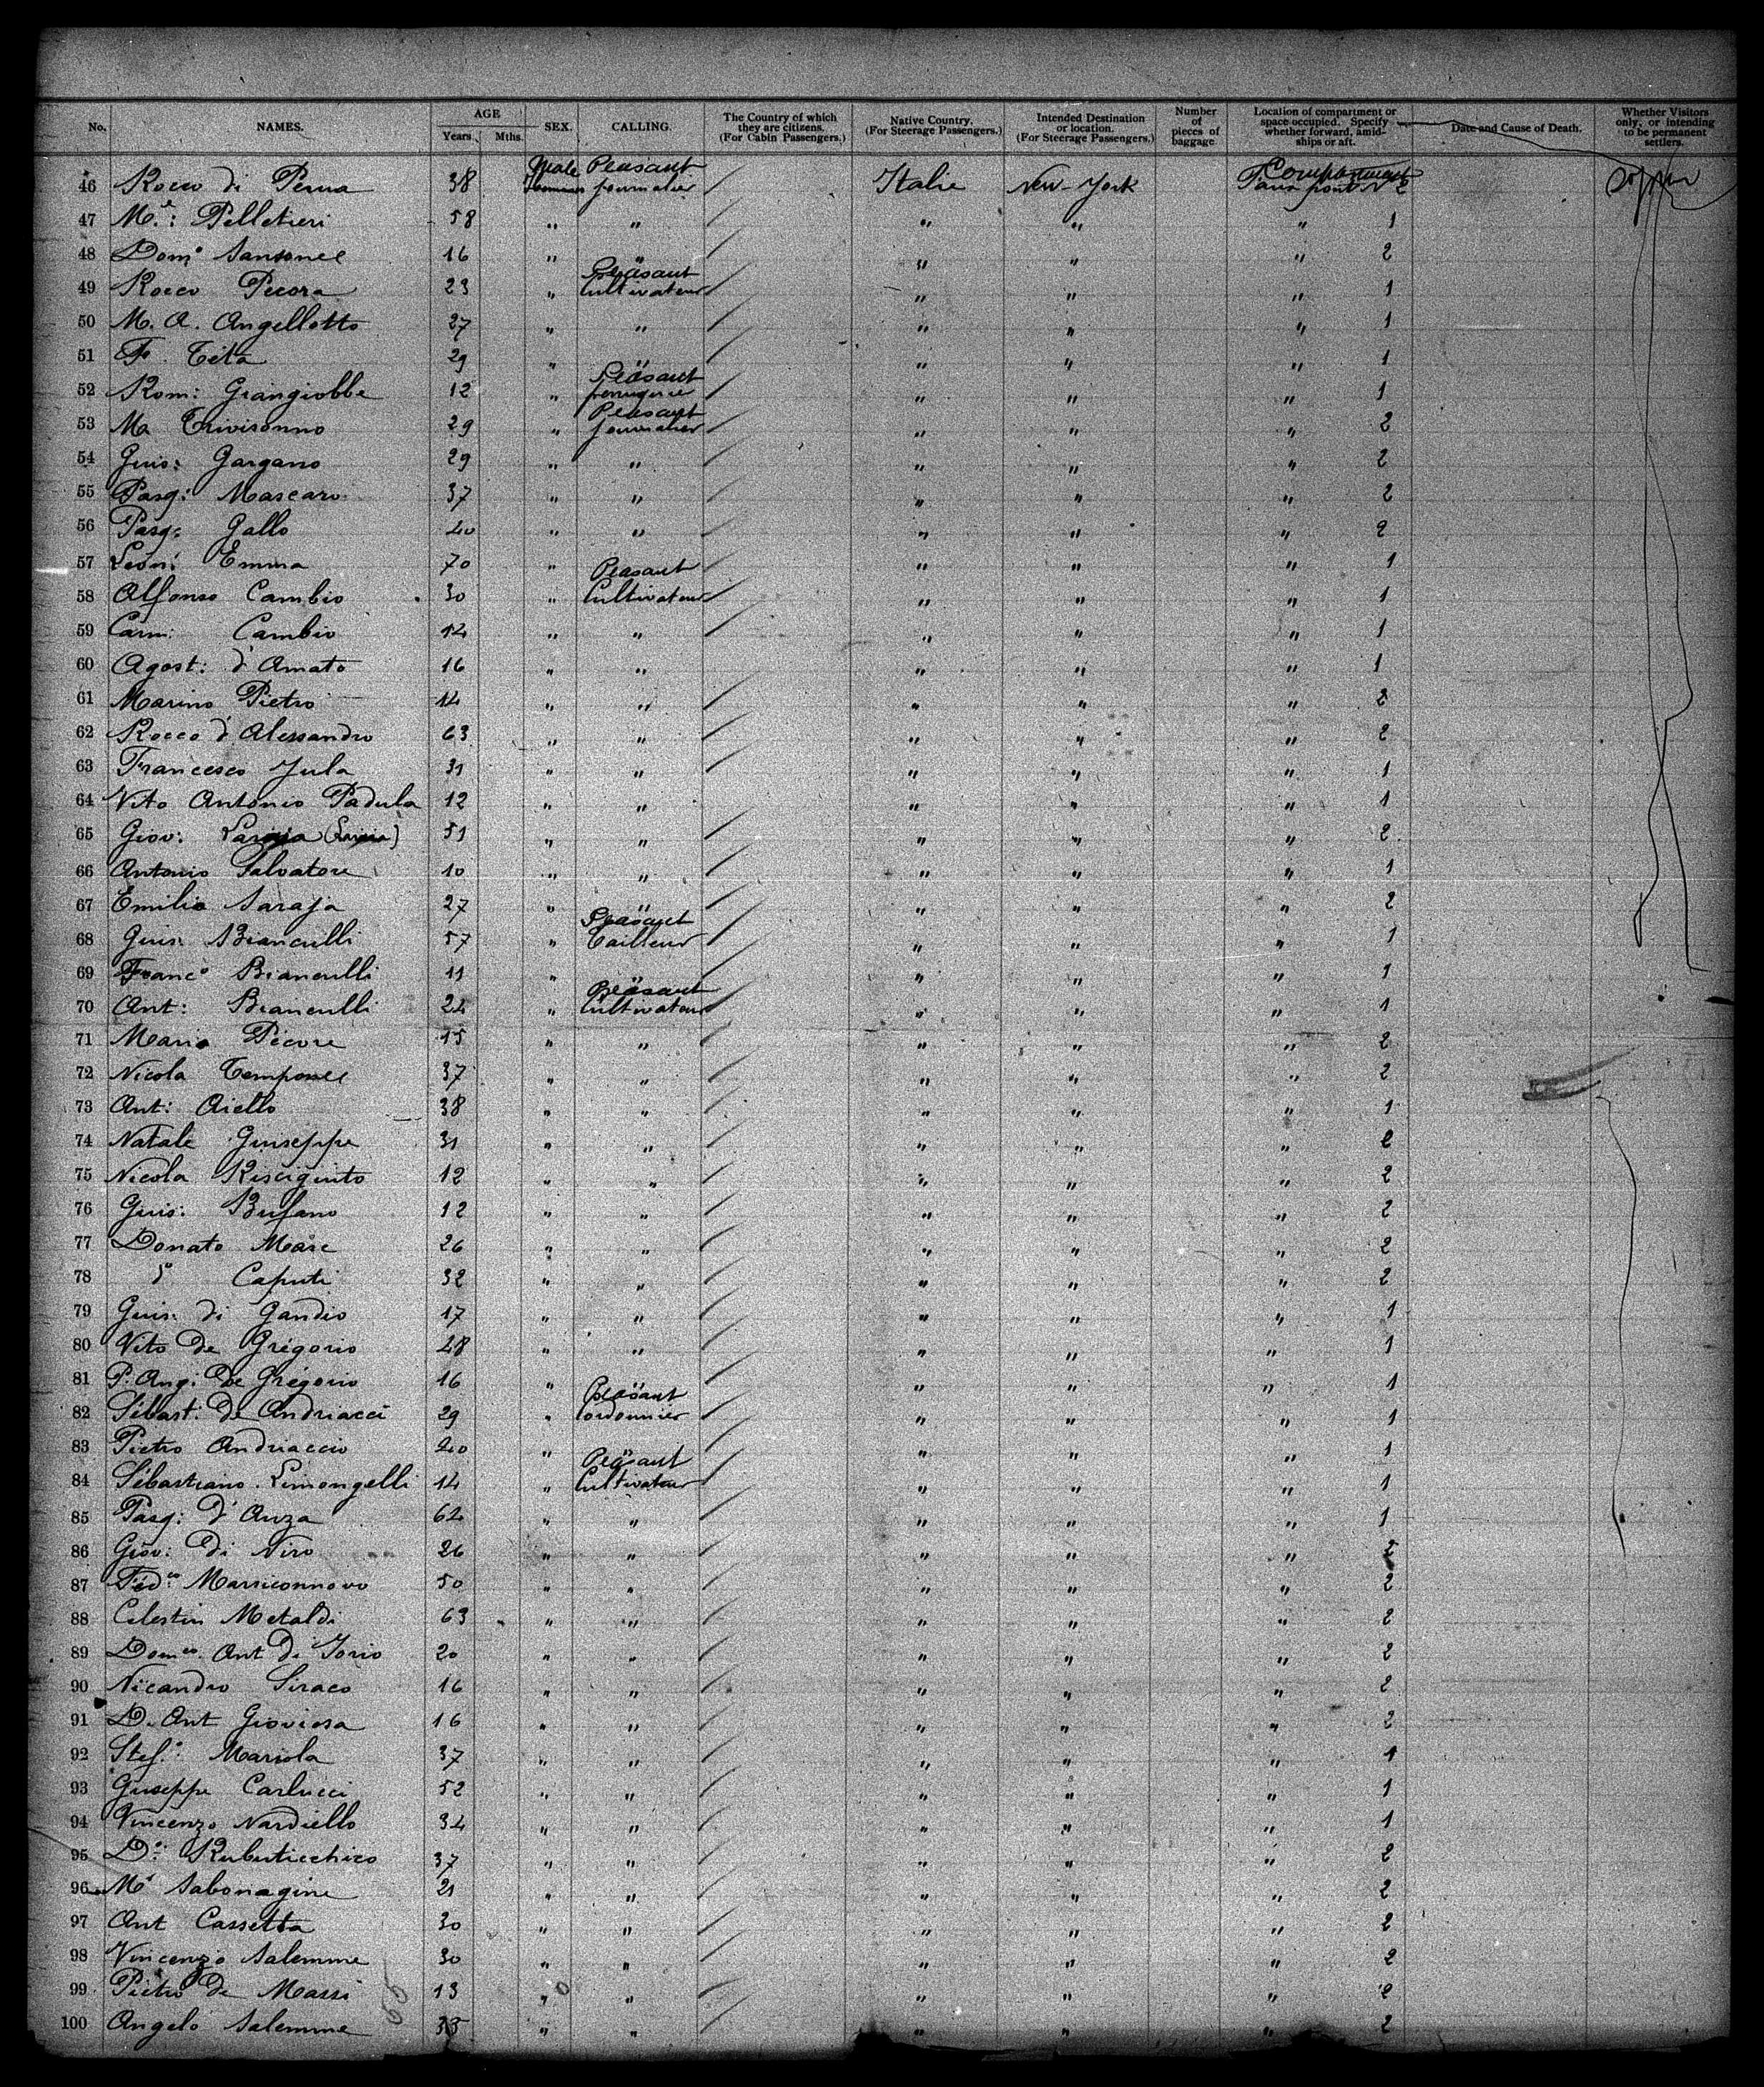 No. NAMES. AGE Years. Mths. SEX. CALLING. The Country of which they are citizens. (For Cabin Passengers.) Native Country. (For Steerage Passengers.) Intended Destination or location. (For Steerage Passengers.) Number of pieces of baggage Location of compartment or space occupied. Specify whether forward, amidships or aft. Date and Cause of Death. Whether Visitors only, or intending to be permanent settlers.
Male Peasant Compartment
46 Rocco di Perna 38 journalier Italie New-York 2
47 M.e: Pelletieri 58 " " " " " 1
48 Dom.o Sansonel 16 " " " " " 2
Peasant
49 Rocco Pecora 23 " Cultivateur " " " 1
50 M. A. Angellotto 27 " " " " " 1
51 F. Téta 29 " " " " " 1
Peasant
52 Rom: Giangiobbe 12 " " " " 1
Peasant
53 Ma Trivisonno 29 " journalier " " " 2
54 Guis: Gargano 29 " " " " " 2
55 Pasq: Mascaro 37 " " " " " 2
56 Pasq: Gallo 20 " " " " " 2
57 Léon: Emma 70 " " " " 1
Peasant
58 Alfonso Cambio 30 " Cultivateur " " " 1
59 Carm: Cambio 12 " " " " " 1
60 Agost: d'Amato 16 " " " " " 1
61 Marino Pietro 14 " " " " " 2
62 Rocco d'Alessandro 63 " " " " " 2
63 Francesco Jula 31 " " " " " 1
64 Vito Antonio Padula 12 " " " " " 1
65 Giov: 51 " " " " " 2
66 Antonio Salvatore 10 " " " " " 1
67 Emilio Saraja 27 " " " " " 2
Peasant
68 Guis: Biancrilli 57 " Tailleur " " " 1
69 Franc.o Biancrulli 11 " " " " " 1
Peasant
70 Ant: Biancrulli 24 " Cultivateur " " " 1
71 Maria Pecore 15 " " " " " 2
72 Nicola Temponel 37 " " " " " 2
73 Ant: Aiello 38 " " " " " 1
74 Natale Giuseppe 31 " " " " " 2
75 Nicola Riscigiuto 12 " " " " " 2
76 Guis: Bufano 12 " " " " " 2
77 Donato Mare 26 " " " " " 2
78 d.o Caputi 32 " " " " " 2
79 Guis: di Gandio 17 " " " " " 1
80 Vito de Grégorio 28 " " " " " 1
81 P. Ang: De Grégorio 16 " " " " " 1
Peasant
82 Sébast: de Andriacci 29 " Cordonnier " " " 1
83 Pietro Andriaccio 20 " " " " " 1
Peasant
84 Sébastiano Limongelli 14 " Cultivateur " " " 1
85 Pasq: d'Anza 62 " " " " " 1
86 Giov: di Niro 26 " " " " " 2
87 Féd.co Marriconnovo 50 " " " " " 2
88 Celestin Metaldi 63 " " " " " 2
89 Dom.co Ant di Iorio 20 " " " " " 2
90 Nicandro Siraco 16 " " " " " 2
91 D. Ant Gioviosa 16 " " " " " 2
92 Stef.o: Mariola 37 " " " " " 1
93 Giuseppe Carlucci 52 " " " " " 1
94 Vincenzo Nardiello 34 " " " " " 1
95 D.o: Rubuticchico 37 " " " " " 2
96 M.e Sabonagine 21 " " " " " 2
97 Ant Cassetta 30 " " " " " 2
98 Vincenzo Salemme 30 " " " " " 2
99 Pietro de Massi 13 " " " " " 2
100 Angelo Salemme 35 " " " " " 2